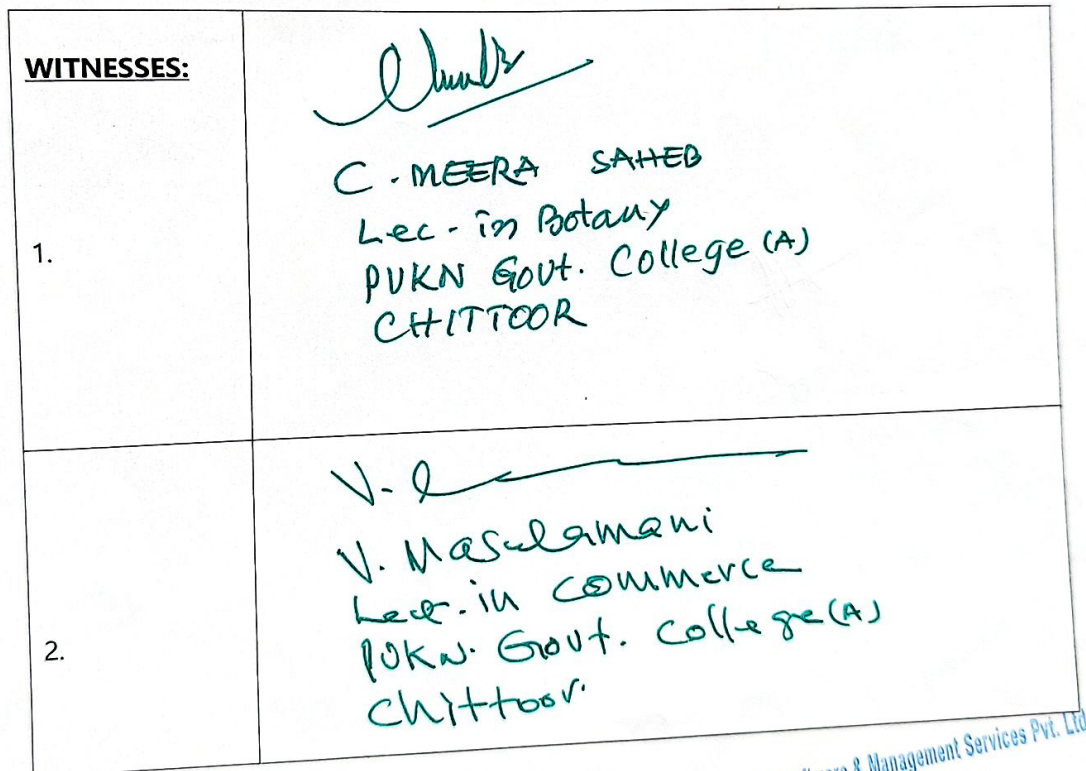 WITNESSES:
1.
C. MEERA SAHEB
Lec. in Botany
PVKN Govt. College (A)
CHITTOOR
2.
V.
V. Masilamani
Lect. in Commerce
PVKN. Govt. College (A)
Chittoor.
& Management Services Pvt. Ltd